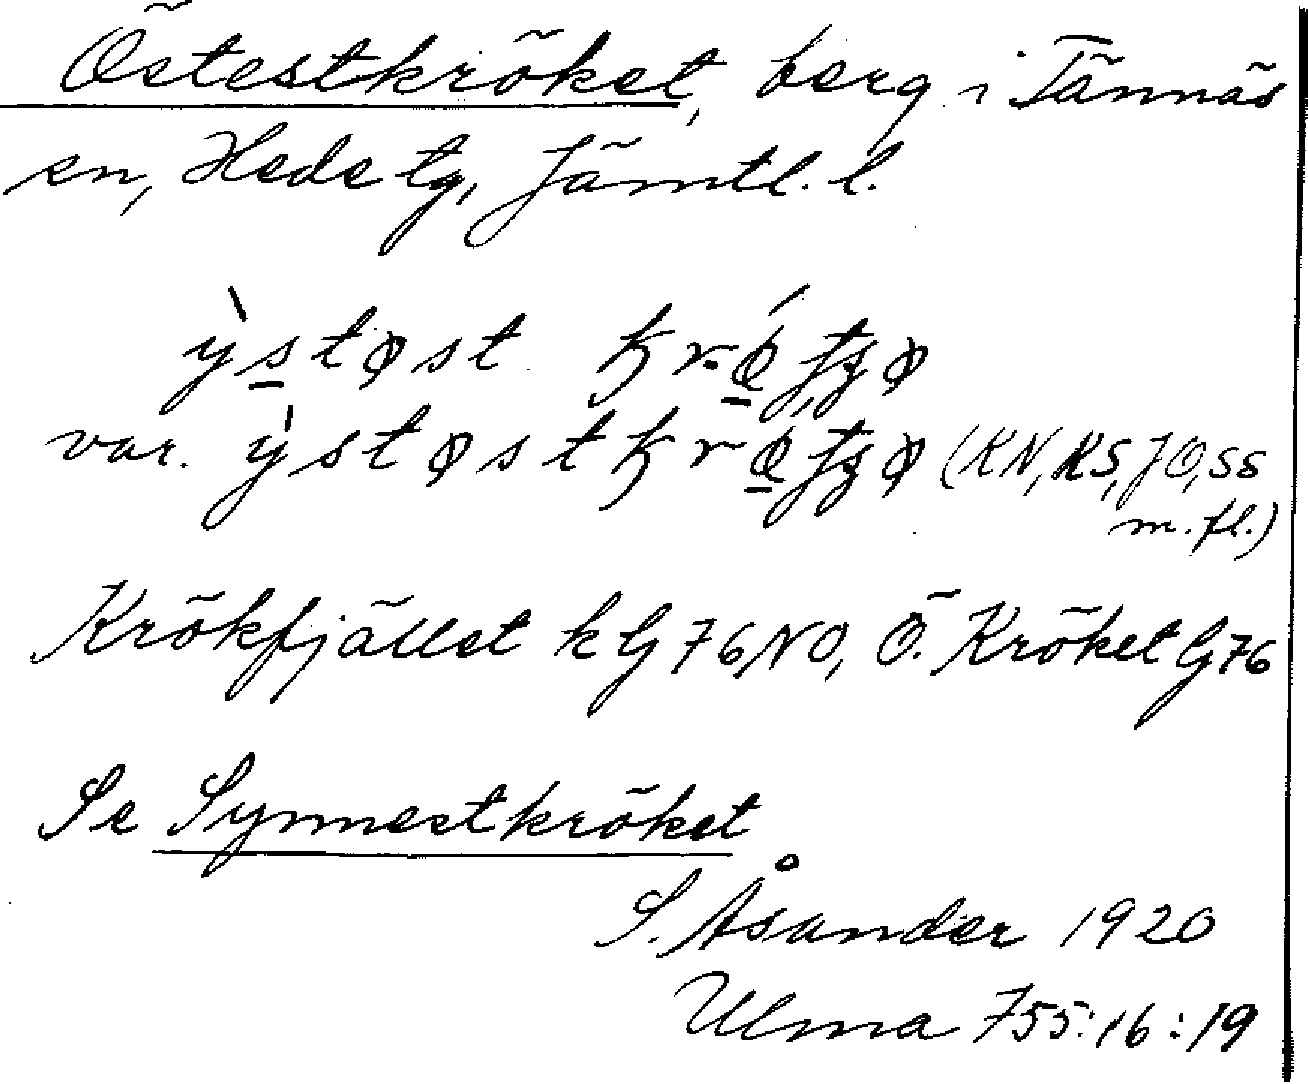 Östestkröket, berg i Tännäs
sn, Hede tg, Jämtl. l.
var. (KN, KS, JO, SS
m. fl.)
Krökfjället k G 76 NO, Ö. Kröket G 76
Se Synnestkröket
S. Åsander 1920
Ulma 755:16:19